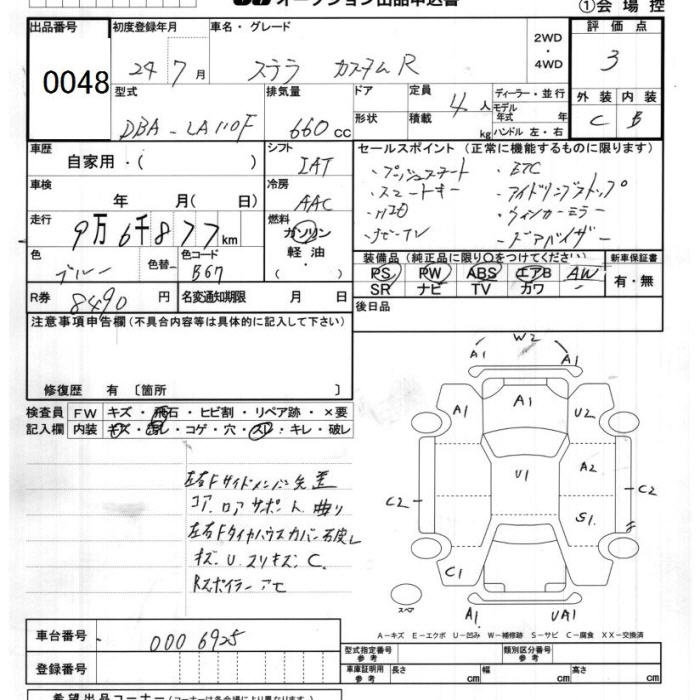 オークション出品申込書
①会場控
出品番号 初度登録年月 車名・グレード 2WD ・ 4WD 評価点
0048
24 7月 ステラ カスタムR 3
型式 排気量 ドア 形状 定員 積載 4人 kg ディーラー・並行 モデル年式 年 ハンドル 左・右 外装 内装
DBA-LA110F 660cc C B
車歴 シフト セールスポイント（正常に機能するものに限ります）
自家用・( ) IAT ・プッシュスタート ・ETC
車検 冷房 ・スマートキー ・アイドリングストップ
年 月(日) AAC ・ウィンカーミラー
走行 燃料 ・ドアバイザー
9万6千877km ガソリン 軽油 ・( )
色 色替 色コード 装備品（純正品に限り○をつけてください） 新車保証書
ブルー B67 PS PW ABS エアB AW 有・無
SR ナビ TV カワ
R券 8490円 名変通知期限 月 日 後日品
注意事項申告欄(不具合内容等は具体的に記入して下さい)
修復歴 有 〔箇所 〕
検査員 FW キズ・飛石・ヒビ割・リペア跡・×要
記入欄 内装 キズ・汚レ・コゲ・穴・スレ・キレ・破レ
左右Fサイドメンバー先差
コア、ロアサポート曲り
左右Fタイヤハウスカバー
キズ、U、スリキズ、C、
Rスポイラー
W2
A1 A1
A1 A1 U2
U1 A2
C2 C2
S1
C1
スペア A1 UA1
A－キズ E－エクボ U－凹み W－補修跡 S－サビ C－腐食 XX－交換済
車台番号 0006925
登録番号
型式指定番号 参考 類別区分番号 参考
車庫証明用 参考 長さ cm 幅 cm 高さ cm
希望出品コーナー(コーナーは各会場により異なります)